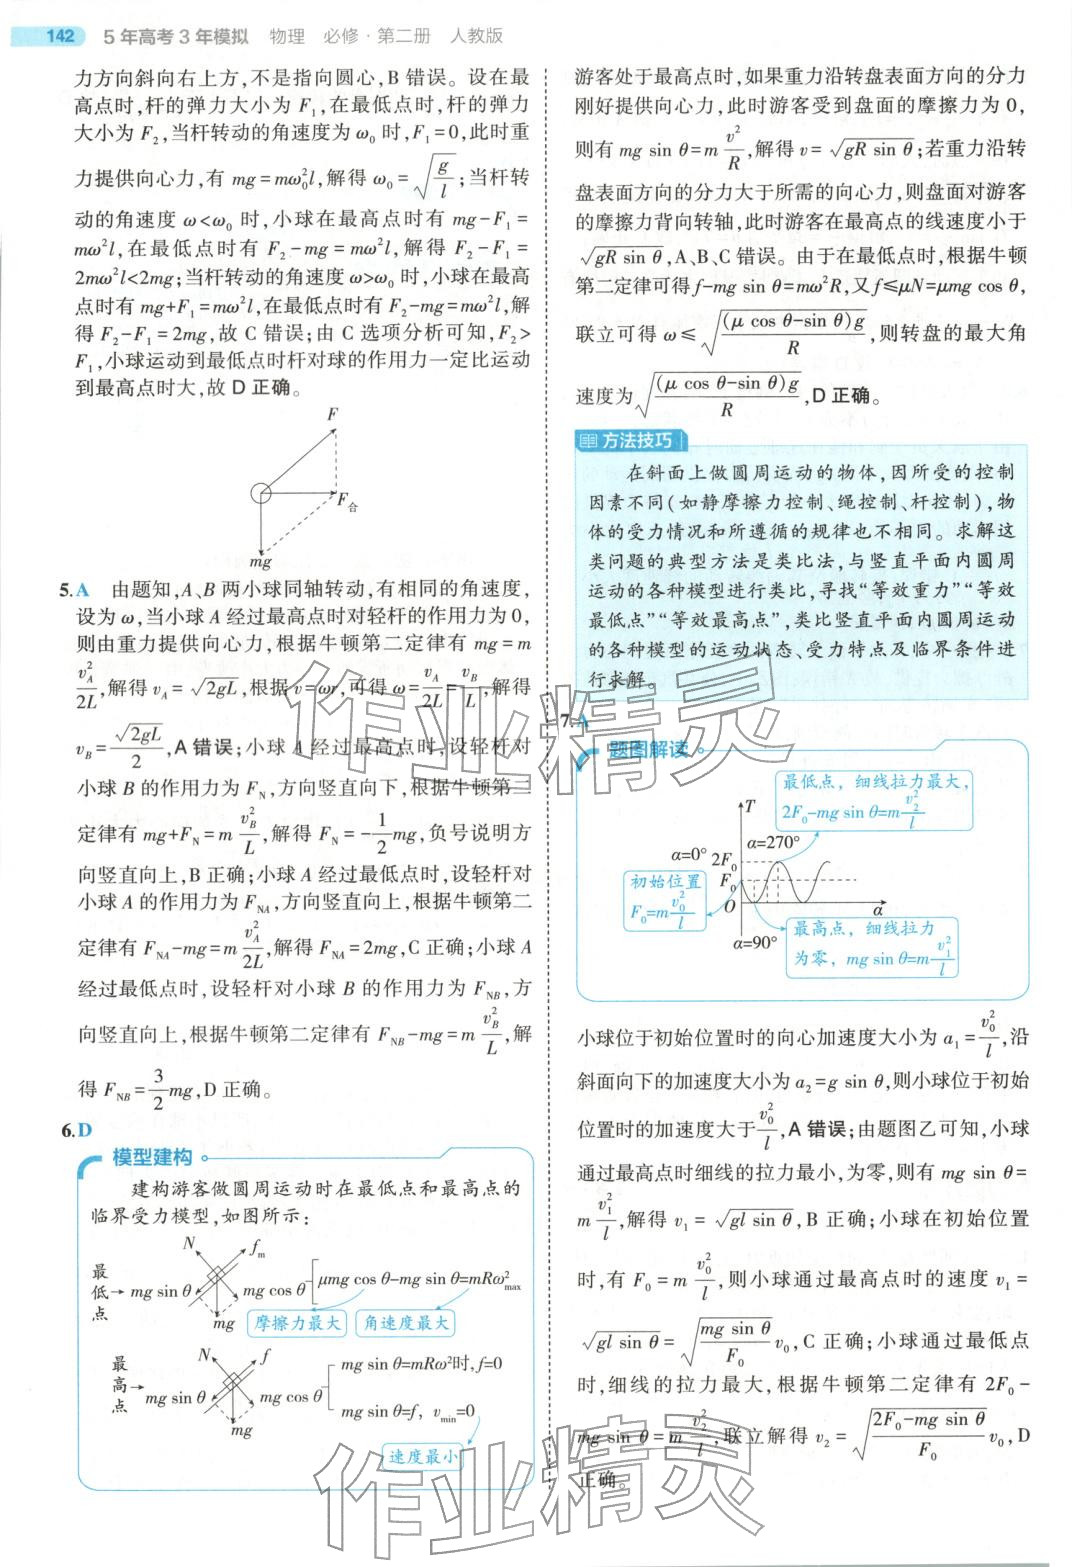 142 5年高考3年模拟 物理 必修·第二册 人教版
力方向斜向右上方,不是指向圆心,B 错误。设在最
高点时,杆的弹力大小为 F₁,在最低点时,杆的弹力
大小为 F₂,当杆转动的角速度为 ω₀ 时,F₁=0,此时重
力提供向心力,有 mg=mω₀²l,解得 ω₀=√(g/l);当杆转
动的角速度 ω<ω₀ 时,小球在最高点时有 mg-F₁=
mω²l,在最低点时有 F₂-mg=mω²l,解得 F₂-F₁=
2mω²l<2mg;当杆转动的角速度 ω>ω₀ 时,小球在最高
点时有 mg+F₁=mω²l,在最低点时有 F₂-mg=mω²l,解
得 F₂-F₁=2mg,故 C 错误;由 C 选项分析可知,F₂>
F₁,小球运动到最低点时杆对球的作用力一定比运动
到最高点时大,故 D 正确。
F
F合
mg
5.A 由题知,A、B 两小球同轴转动,有相同的角速度,
设为 ω,当小球 A 经过最高点时对轻杆的作用力为 0,
则由重力提供向心力,根据牛顿第二定律有 mg=m
v_A²/2L,解得 v_A=√(2gL),根据 v=ωr,可得 ω=v_A/2L=v_B/L,解得
v_B=√(2gL)/2,A 错误;小球 A 经过最高点时,设轻杆对
小球 B 的作用力为 F_N,方向竖直向下,根据牛顿第二
定律有 mg+F_N=m v_B²/L,解得 F_N=-1/2 mg,负号说明方
向竖直向上,B 正确;小球 A 经过最低点时,设轻杆对
小球 A 的作用力为 F_NA,方向竖直向上,根据牛顿第二
定律有 F_NA-mg=m v_A²/2L,解得 F_NA=2mg,C 正确;小球 A
经过最低点时,设轻杆对小球 B 的作用力为 F_NB,方
向竖直向上,根据牛顿第二定律有 F_NB-mg=m v_B²/L,解
得 F_NB=3/2 mg,D 正确。
6.D
模型建构
建构游客做圆周运动时在最低点和最高点的
临界受力模型,如图所示:
最低点 N f_m mg sin θ mg cos θ mg
μmg cos θ-mg sin θ=mRω²_max
摩擦力最大 角速度最大
最高点 N f mg sin θ mg cos θ mg
mg sin θ=mRω²时,f=0
mg sin θ=f, v_min=0
速度最小
游客处于最高点时,如果重力沿转盘表面方向的分力
刚好提供向心力,此时游客受到盘面的摩擦力为 0,
则有 mg sin θ=m v²/R,解得 v=√(gR sin θ);若重力沿转
盘表面方向的分力大于所需的向心力,则盘面对游客
的摩擦力背向转轴,此时游客在最高点的线速度小于
√(gR sin θ),A、B、C 错误。由于在最低点时,根据牛顿
第二定律可得 f-mg sin θ=mω²R,又 f≤μN=μmg cos θ,
联立可得 ω≤√((μ cos θ-sin θ)g/R),则转盘的最大角
速度为√((μ cos θ-sin θ)g/R),D 正确。
方法技巧
在斜面上做圆周运动的物体,因所受的控制
因素不同(如静摩擦力控制、绳控制、杆控制),物
体的受力情况和所遵循的规律也不相同。求解这
类问题的典型方法是类比法,与竖直平面内圆周
运动的各种模型进行类比,寻找“等效重力”“等效
最低点”“等效最高点”,类比竖直平面内圆周运动
的各种模型的运动状态、受力特点及临界条件进
行求解。
7.A
题图解读
最低点,细线拉力最大,
2F₀-mg sin θ=m v₂²/l
T
α=270°
α=0° 2F₀
F₀
初始位置
F₀=m v₀²/l
O α
α=90°
最高点,细线拉力
为零,mg sin θ=m v₁²/l
小球位于初始位置时的向心加速度大小为 a₁=v₀²/l,沿
斜面向下的加速度大小为 a₂=g sin θ,则小球位于初始
位置时的加速度大于 v₀²/l,A 错误;由题图乙可知,小球
通过最高点时细线的拉力最小,为零,则有 mg sin θ=
m v₁²/l,解得 v₁=√(gl sin θ),B 正确;小球在初始位置
时,有 F₀=m v₀²/l,则小球通过最高点时的速度 v₁=
√(gl sin θ)=√(mg sin θ/F₀) v₀,C 正确;小球通过最低点
时,细线的拉力最大,根据牛顿第二定律有 2F₀-
mg sin θ=m v₂²/l,联立解得 v₂=√((2F₀-mg sin θ)/F₀) v₀,D
正确。
作业精灵
作业精灵